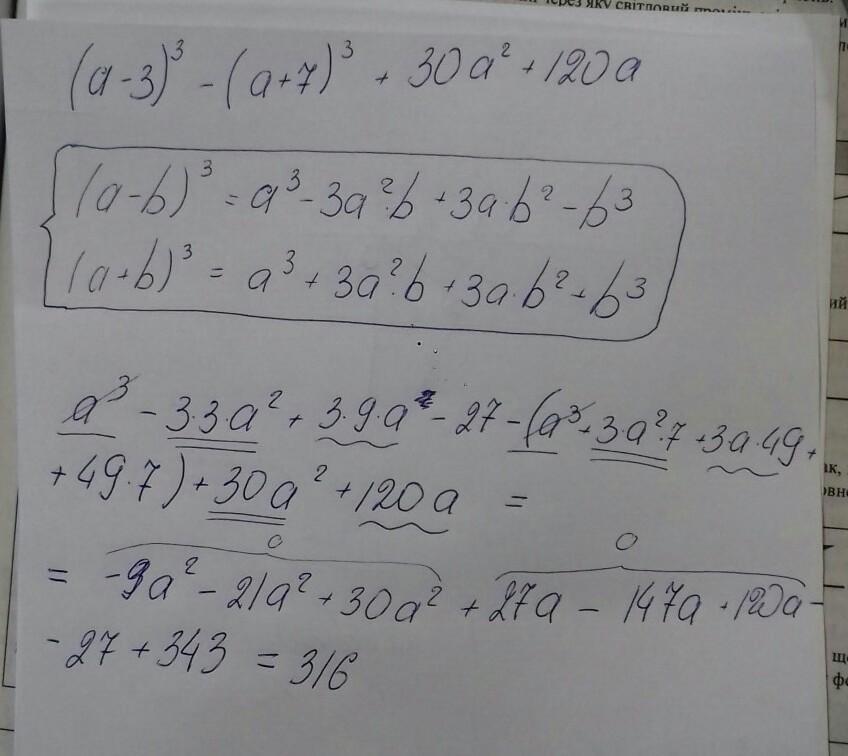 через яку світловий
(a-3)³ - (a+7)³ + 30a² + 120a
(a-b)³ = a³ - 3a²·b + 3a·b² - b³
(a+b)³ = a³ + 3a²·b + 3a·b² + b³
a³ - 3·3·a² + 3·9·a - 27 - (a³ + 3·a²·7 + 3a·49 +
+ 49·7) + 30a² + 120a =
0 0
= -9a² - 21a² + 30a² + 27a - 147a + 120a -
- 27 + 343 = 316